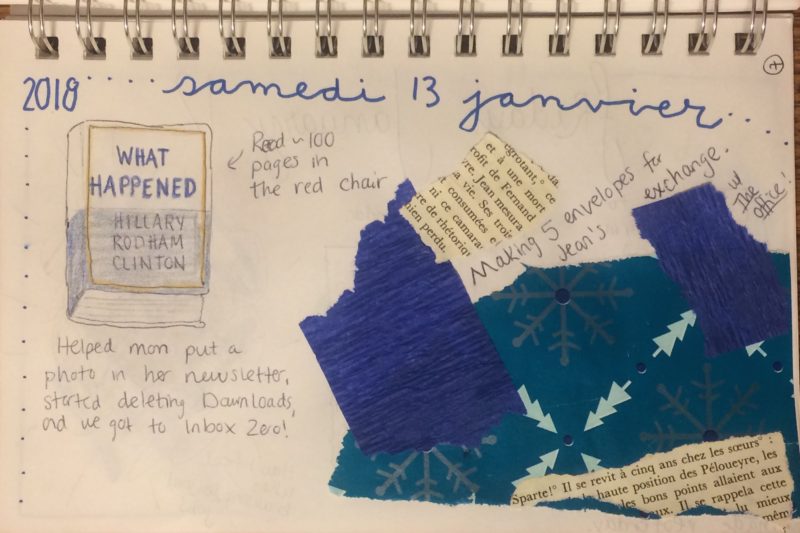 2018 samedi 13 janvier
+
WHAT
HAPPENED
HILLARY
RODHAM
CLINTON
Read ~100
pages in
the red chair
Helped mom put a
photo in her newsletter,
started deleting Downloads,
and we got to Inbox Zero!
Making 5 envelopes for
Jean's exchange.
w/
The
Office!
egrotant,° ce
et à une mort
rofit de Fernand
vre. Jean mesura
a vie. Ses trois
consumées et
ni ce camara
re de rhétoriq
hien perdu.
Sparte!° Il se revit à cinq ans chez les sœurs°:
haute position des Péloueyre, les
les bons points allaient aux
aux. Il se rappela cette
lu mieux
mêm